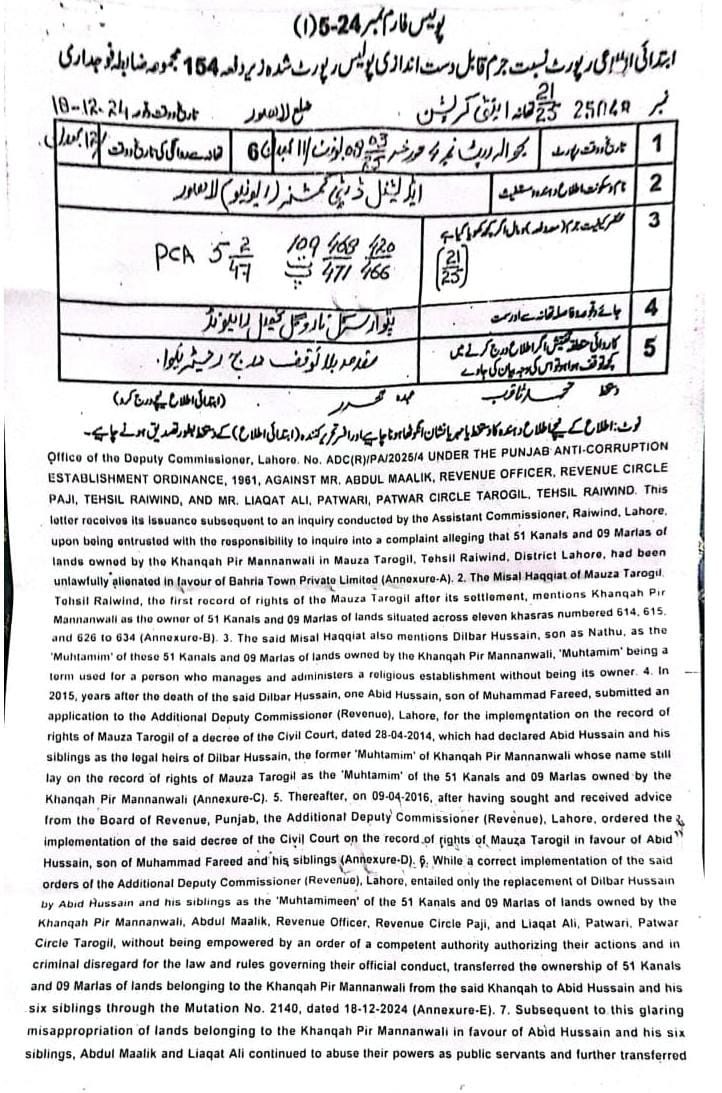 پولیس فارم نمبر 24-5(I)
ابتدائی اطلاعی رپورٹ نسبت جرم قابل دست اندازی پولیس رپورٹ شدہ زیر دفعہ 154 مجموعہ ضابطہ فوجداری
نمبر 25/048 21/25 تھانہ اینٹی کرپشن ضلع لاہور تاریخ وقوعہ 18-12-24
1 تاریخ وقت رپورٹ بحوالہ رپٹ نمبر 4 مورخہ
2 ایڈیشنل ڈپٹی کمشنر (ریونیو) لاہور
3 21/25 420 468 109 466 471 PCA 5 2 47
4 پٹوار سرکل تاروگل تحصیل رائیونڈ
5 مقدمہ بلا توقف درج رجسٹر ہوا
دستخط محمد ثاقب عہدہ محرر (ابتدائی اطلاع نیچے درج کرو)
نوٹ: اطلاع کے نیچے اطلاع دہندہ کا دستخط یا مہر یا نشان انگوٹھا ہونا چاہیے اور افسر تحریر کنندہ (ابتدائی اطلاع) کے دستخط بطور تصدیق ہونے چاہیے۔
Office of the Deputy Commissioner, Lahore. No. ADC(R)/PA/2025/4 UNDER THE PUNJAB ANTI-CORRUPTION
ESTABLISHMENT ORDINANCE, 1961, AGAINST MR. ABDUL MAALIK, REVENUE OFFICER, REVENUE CIRCLE
PAJI, TEHSIL RAIWIND, AND MR. LIAQAT ALI, PATWARI, PATWAR CIRCLE TAROGIL, TEHSIL RAIWIND. This
letter receives its issuance subsequent to an inquiry conducted by the Assistant Commissioner, Raiwind, Lahore,
upon being entrusted with the responsibility to inquire into a complaint alleging that 51 Kanals and 09 Marlas of
lands owned by the Khanqah Pir Mannanwali in Mauza Tarogil, Tehsil Raiwind, District Lahore, had been
unlawfully alienated in favour of Bahria Town Private Limited (Annexure-A). 2. The Misal Haqqiat of Mauza Tarogil,
Tehsil Raiwind, the first record of rights of the Mauza Tarogil after its settlement, mentions Khanqah Pir
Mannanwali as the owner of 51 Kanals and 09 Marlas of lands situated across eleven khasras numbered 614, 615,
and 626 to 634 (Annexure-B). 3. The said Misal Haqqiat also mentions Dilbar Hussain, son as Nathu, as the
'Muhtamim' of these 51 Kanals and 09 Marlas of lands owned by the Khanqah Pir Mannanwali, 'Muhtamim' being a
term used for a person who manages and administers a religious establishment without being its owner. 4. In
2015, years after the death of the said Dilbar Hussain, one Abid Hussain, son of Muhammad Fareed, submitted an
application to the Additional Deputy Commissioner (Revenue), Lahore, for the implementation on the record of
rights of Mauza Tarogil of a decree of the Civil Court, dated 28-04-2014, which had declared Abid Hussain and his
siblings as the legal heirs of Dilbar Hussain, the former 'Muhtamim' of Khanqah Pir Mannanwali whose name still
lay on the record of rights of Mauza Tarogil as the 'Muhtamim' of the 51 Kanals and 09 Marlas owned by the
Khanqah Pir Mannanwali (Annexure-C). 5. Thereafter, on 09-04-2016, after having sought and received advice
from the Board of Revenue, Punjab, the Additional Deputy Commissioner (Revenue), Lahore, ordered the
implementation of the said decree of the Civil Court on the record of rights of Mauza Tarogil in favour of Abid
Hussain, son of Muhammad Fareed and his siblings (Annexure-D). 6. While a correct implementation of the said
orders of the Additional Deputy Commissioner (Revenue), Lahore, entailed only the replacement of Dilbar Hussain
by Abid Hussain and his siblings as the 'Muhtamimeen' of the 51 Kanals and 09 Marlas of lands owned by the
Khanqah Pir Mannanwali, Abdul Maalik, Revenue Officer, Revenue Circle Paji, and Liaqat Ali, Patwari, Patwar
Circle Tarogil, without being empowered by an order of a competent authority authorizing their actions and in
criminal disregard for the law and rules governing their official conduct, transferred the ownership of 51 Kanals
and 09 Marlas of lands belonging to the Khanqah Pir Mannanwali from the said Khanqah to Abid Hussain and his
six siblings through the Mutation No. 2140, dated 18-12-2024 (Annexure-E). 7. Subsequent to this glaring
misappropriation of lands belonging to the Khanqah Pir Mannanwali in favour of Abid Hussain and his six
siblings, Abdul Maalik and Liaqat Ali continued to abuse their powers as public servants and further transferred